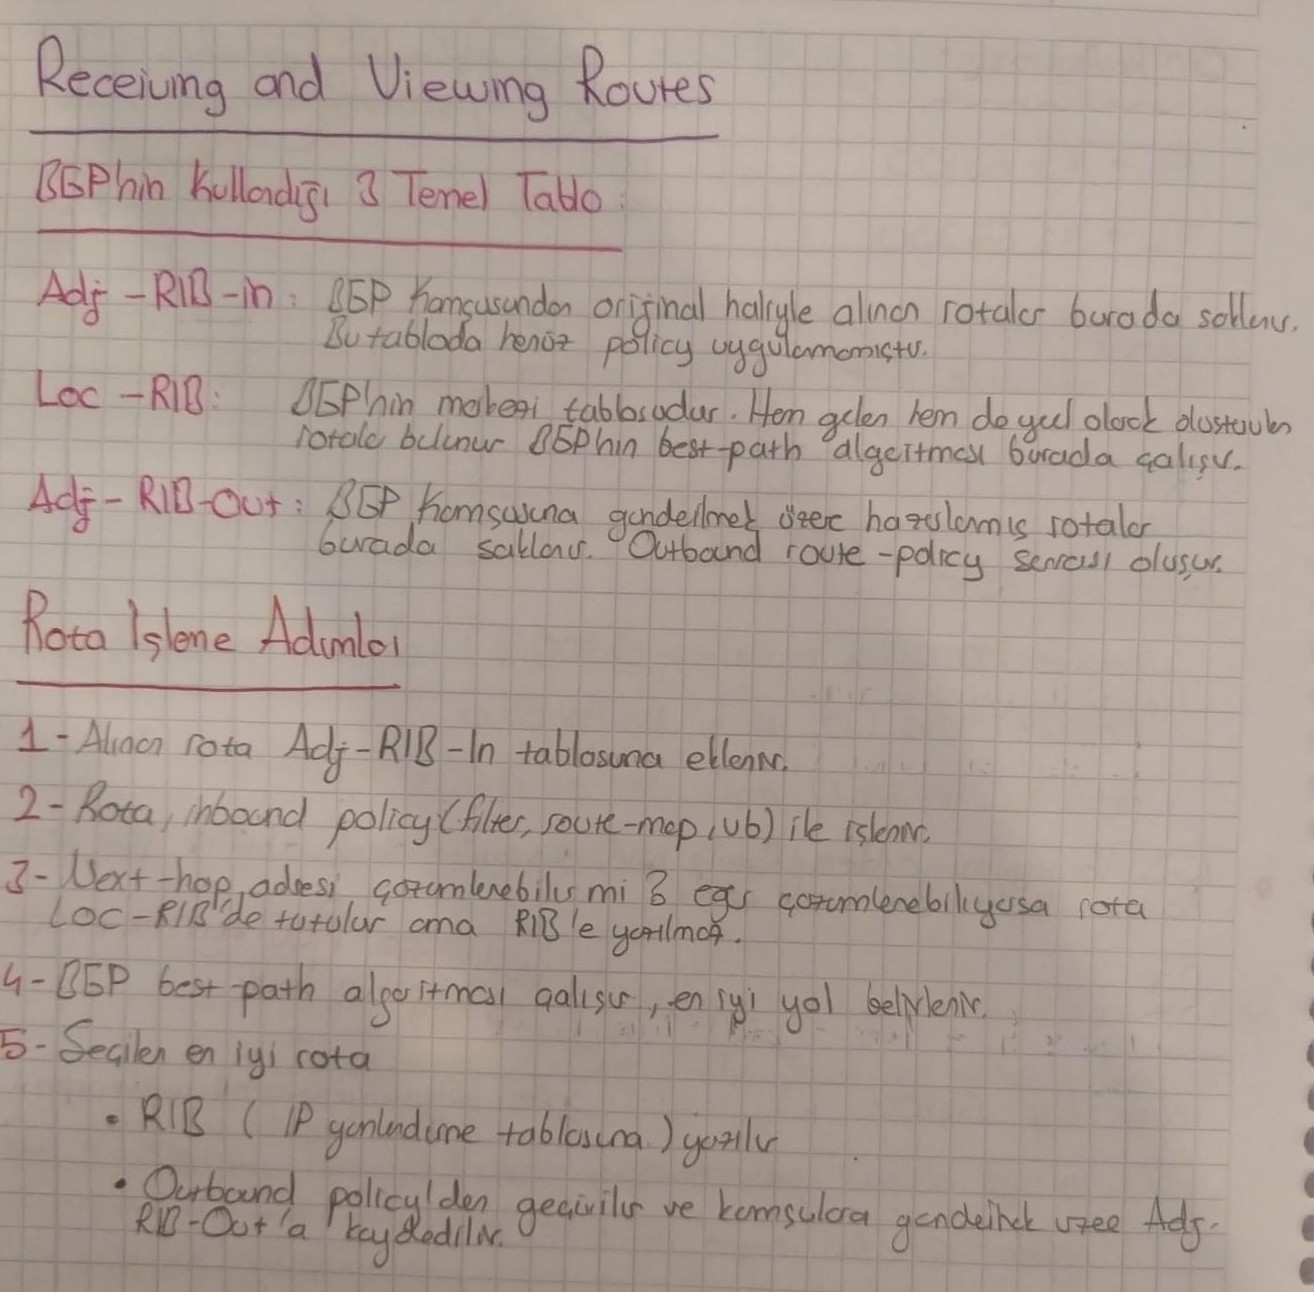 Receiving and Viewing Routes
BGP'nin Kullandığı 3 Temel Tablo:
Adj-RIB-in: BGP Komşusundan orijinal haliyle alınan rotalar burada saklanır.
Bu tabloda henüz policy uygulanmamıştır.
Loc-RIB: BGP'nin merkezi tablosudur. Hem gelen hem de yerel olarak oluşturulan
rotalar bulunur BGP'nin best-path algoritması burada çalışır.
Adj-RIB-Out: BGP Komşusuna gönderilmek üzere hazırlanmış rotalar
burada saklanır. Outbound route-policy sonrası oluşur.
Rota İşleme Adımları
1- Alınan rota Adj-RIB-In tablosuna eklenir.
2- Rota, inbound policy (filter, route-map, vb) ile işlenir.
3- Next-hop adresi çözümlenebilir mi? eğer çözümlenebiliyorsa rota
LOC-RIB'de tutulur ama RIB'e yazılmaz.
4- BGP best-path algoritması çalışır, en iyi yol belirlenir.
5- Seçilen en iyi rota
• RIB (IP yönlendirme tablosuna) yazılır
• Outbound policy'den geçirilir ve komşulara gönderilmek üzere Adj-
RIB-Out'a kaydedilir.